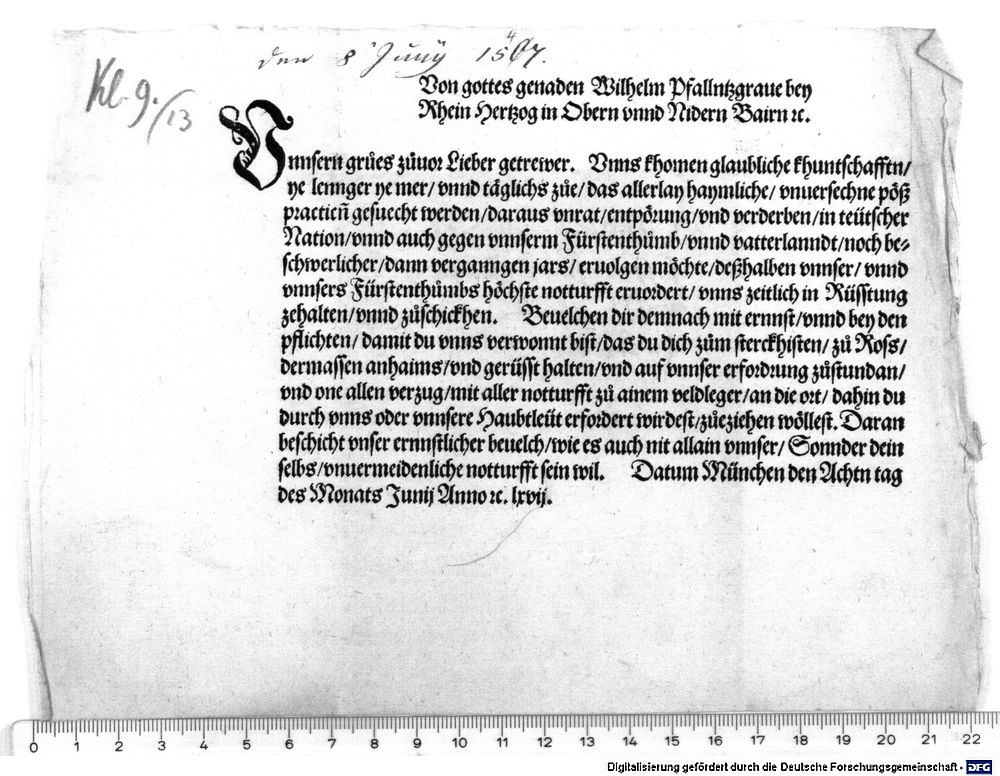 den 8 Junÿ 1567.
4
Kl. 9./13
Von gottes genaden Wilhelm Pfallntzgraue bey
Rhein Hertzog in Obern vnnd Nidern Bairn ꝛc.
Vnnsern grůes zůuor Lieber getrewer. Vnns khomen glaubliche khuntschafftn/
ye lennger ye mer/ vnnd täglichs zůe/ das allerlay haymliche/ vnuersechne pöß
practiceñ gesuecht werden/daraus vnrat/entpörung/vnd verderben/in teütscher
Nation/vnnd auch gegen vnnserm Fürstenthůmb/vnnd vatterlanndt/noch be⸗
schwerlicher/dann verganngen jars/ eruolgen möchte/deßhalben vnnser/ vnnd
vnnsers Fürstenthůmbs höchste notturfft eruordert/ vnns zeitlich in Rüsstung
zehalten/vnnd zůschickhen. Beuelchen dir demnach mit ernnst/vnnd bey den
pflichten/ damit du vnns verwonnt bist/das du dich zům sterckhisten/ zů Ross/
dermassen anhaims/vnd gerüsst halten/vnd auf vnnser erfordrung zůstundan/
vnd one allen verzug/mit aller notturfft zů ainem veldleger/an die ort/ dahin du
durch vnns oder vnnsere Haubtleüt erfordert wirdest/zůeziehen wöllest. Daran
beschicht vnser ernnstlicher beuelch/wie es auch nit allain vnnser/ Sonnder dein
selbs/vnuermeidenliche notturfft sein wil. Datum München den Achtn tag
des Monats Junij Anno ꝛc. lxvij.
0 1 2 3 4 5 6 7 8 9 10 11 12 13 14 15 16 17 18 19 20 21 22
Digitalisierung gefördert durch die Deutsche Forschungsgemeinschaft - DFG